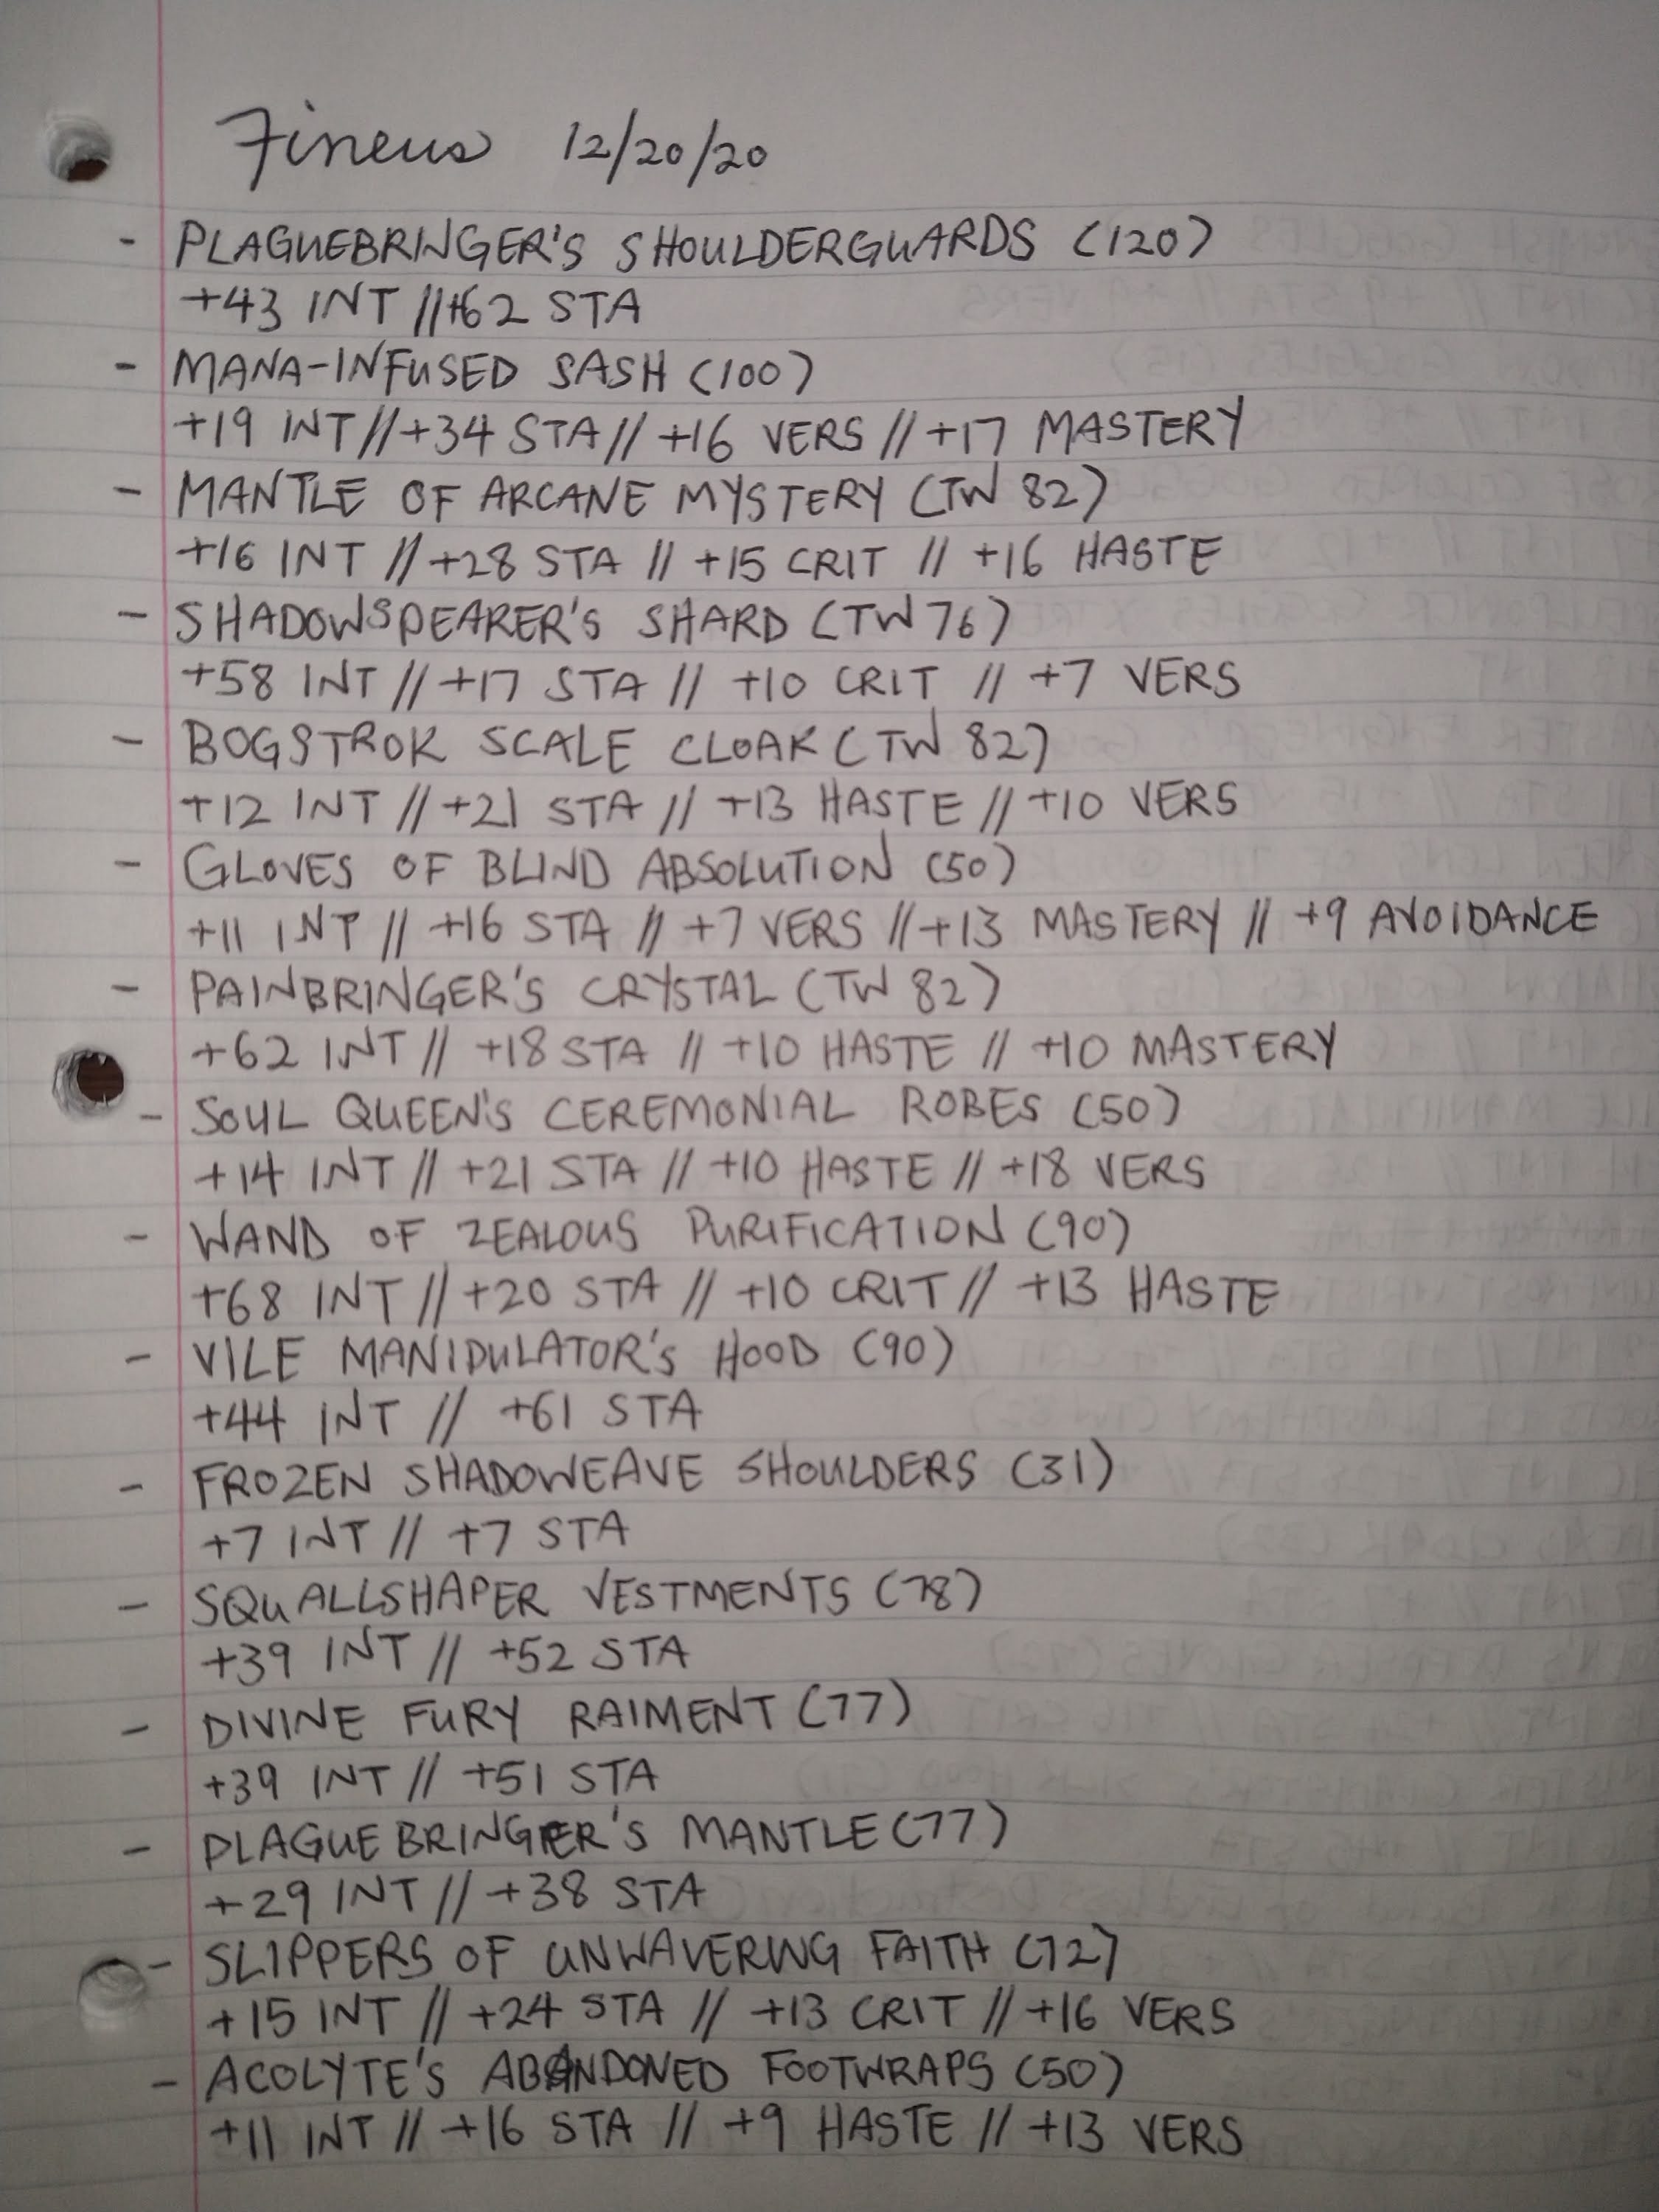 Fineus 12/20/20
- PLAGUEBRINGER'S SHOULDERGUARDS (120)
+43 INT //+62 STA
- MANA-INFUSED SASH (100)
+19 INT // +34 STA // +16 VERS // +17 MASTERY
- MANTLE OF ARCANE MYSTERY (TW 82)
+16 INT // +28 STA // +15 CRIT // +16 HASTE
- SHADOWSPEARER'S SHARD (TW 76)
+58 INT // +17 STA // +10 CRIT // +7 VERS
- BOGSTROK SCALE CLOAK (TW 82)
+12 INT // +21 STA // +13 HASTE // +10 VERS
- GLOVES OF BLIND ABSOLUTION (50)
+11 INT // +16 STA // +7 VERS // +13 MASTERY // +9 AVOIDANCE
- PAINBRINGER'S CRYSTAL (TW 82)
+62 INT // +18 STA // +10 HASTE // +10 MASTERY
- SOUL QUEEN'S CEREMONIAL ROBES (50)
+14 INT // +21 STA // +10 HASTE // +18 VERS
- WAND OF ZEALOUS PURIFICATION (90)
+68 INT // +20 STA // +10 CRIT // +13 HASTE
- VILE MANIPULATOR'S HOOD (90)
+44 INT // +61 STA
- FROZEN SHADOWEAVE SHOULDERS (31)
+7 INT // +7 STA
- SQUALLSHAPER VESTMENTS (78)
+39 INT // +52 STA
- DIVINE FURY RAIMENT (77)
+39 INT // +51 STA
- PLAGUEBRINGER'S MANTLE (77)
+29 INT // +38 STA
- SLIPPERS OF UNWAVERING FAITH (72)
+15 INT // +24 STA // +13 CRIT // +16 VERS
- ACOLYTE'S ABANDONED FOOTWRAPS (50)
+11 INT // +16 STA // +9 HASTE // +13 VERS